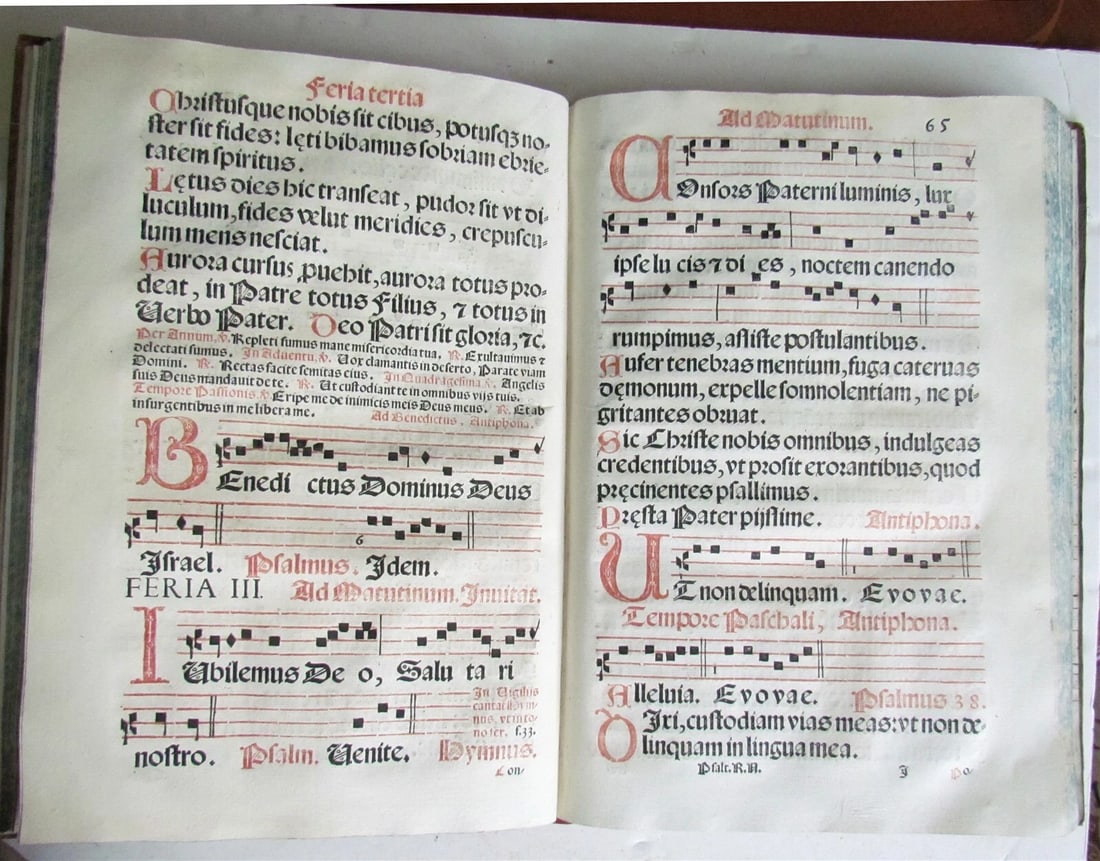 Feria tertia
Christusque nobis sit cibus, potusqꝫ no-
ster sit fides: lęti bibamus sobriam ebrie-
tatem spiritus.
Lętus dies hic transeat, pudor sit vt di-
luculum, fides velut meridies, crepuscu-
lum mens nesciat.
Aurora cursus provehit, aurora totus pro-
deat, in Patre totus Filius, ⁊ totus in
Verbo Pater. Deo Patri sit gloria, ⁊c.
Per Annum, ℣. Repleti sumus mane misericordia tua. ℟. Exultauimus ⁊
delectati sumus. In Aduentu, ℣. Vox clamantis in deserto, Parate viam
Domini. ℟. Rectas facite semitas eius. In Quadragesima ℣. Angelis
suis Deus mandauit de te. ℟. Ut custodiant te in omnibus vijs tuis.
Tempore Passionis ℣. Eripe me de inimicis meis Deus meus. ℟. Et ab
insurgentibus in me libera me. Ad Benedictus. Antiphona.
BEnedi ctus Dominus Deus
6
Israel. Psalmus. Idem.
FERIA III. Ad Matutinum. Inuitat.
IUbilemus De o, Salu ta ri
In Vigilijs
cantat̃ hym
nus, vt in to
no fer. f.33.
nostro. Psalm. Uenite. Hymnus.
Con-
Ad Matutinum. 65
COnsors Paterni luminis, lux
ipse lu cis ⁊ di es, noctem canendo
rumpimus, assiste postulantibus.
Aufer tenebras mentium, fuga cateruas
dęmonum, expelle somnolentiam, ne pi-
gritantes obruat.
Sic Christe nobis omnibus, indulgeas
credentibus, vt prosit exorantibus, quod
pręcinentes psallimus.
Pręsta Pater pijssime. Antiphona.
UT non delinquam. Evovae.
Tempore Paschali, Antiphona.
Alleluia. Evovae. Psalmus 38.
DIxi, custodiam vias meas: vt non de-
linquam in lingua mea.
Psalt. R. A. I Po-